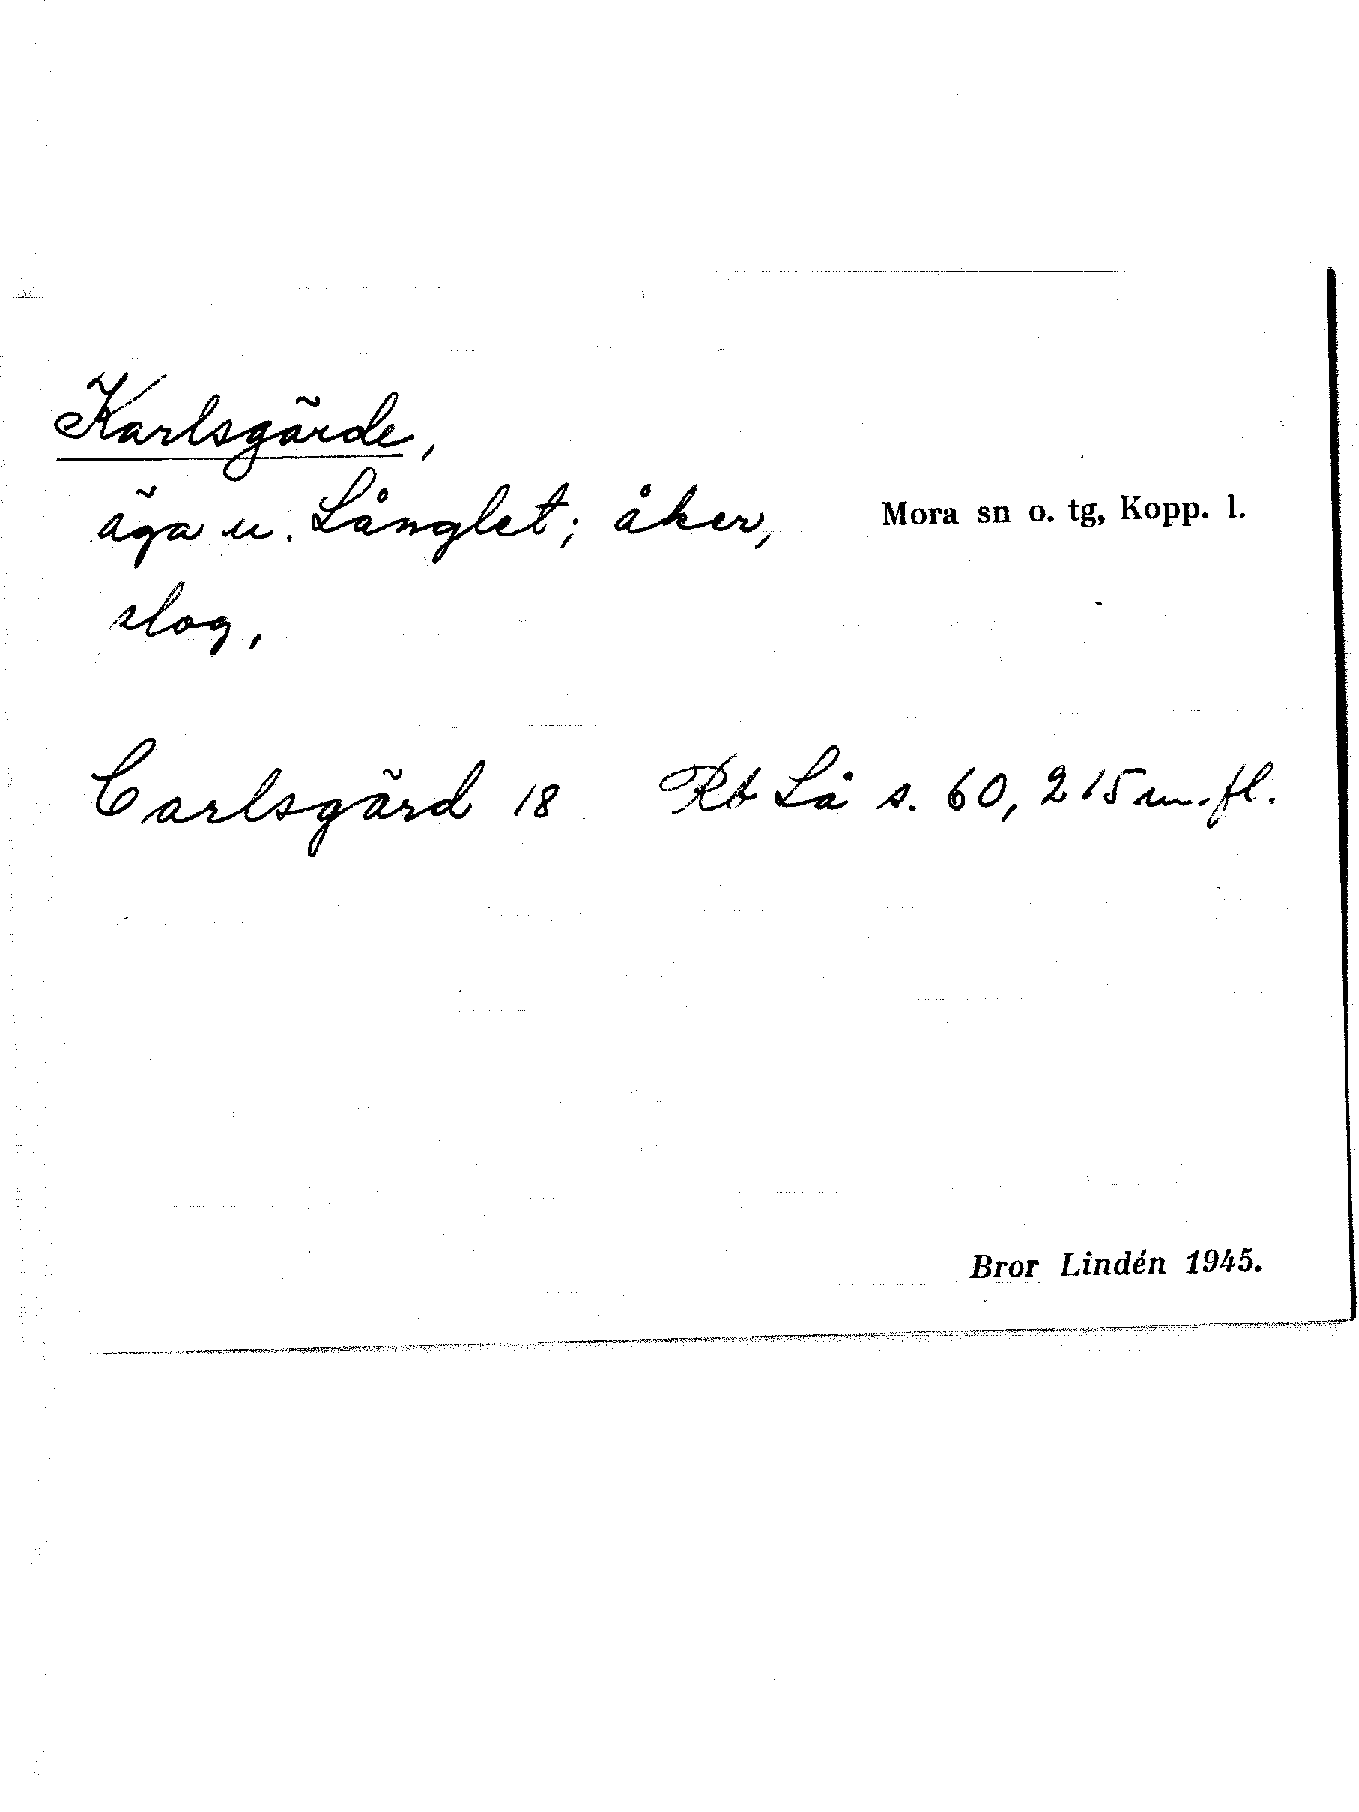 Karlsgärde,
äga u. Långlet; åker,
Mora sn o. tg, Kopp. l.
slog,
Carlsgärd 18 Rb Lå s. 60, 215 m.fl.
Bror Lindén 1945.